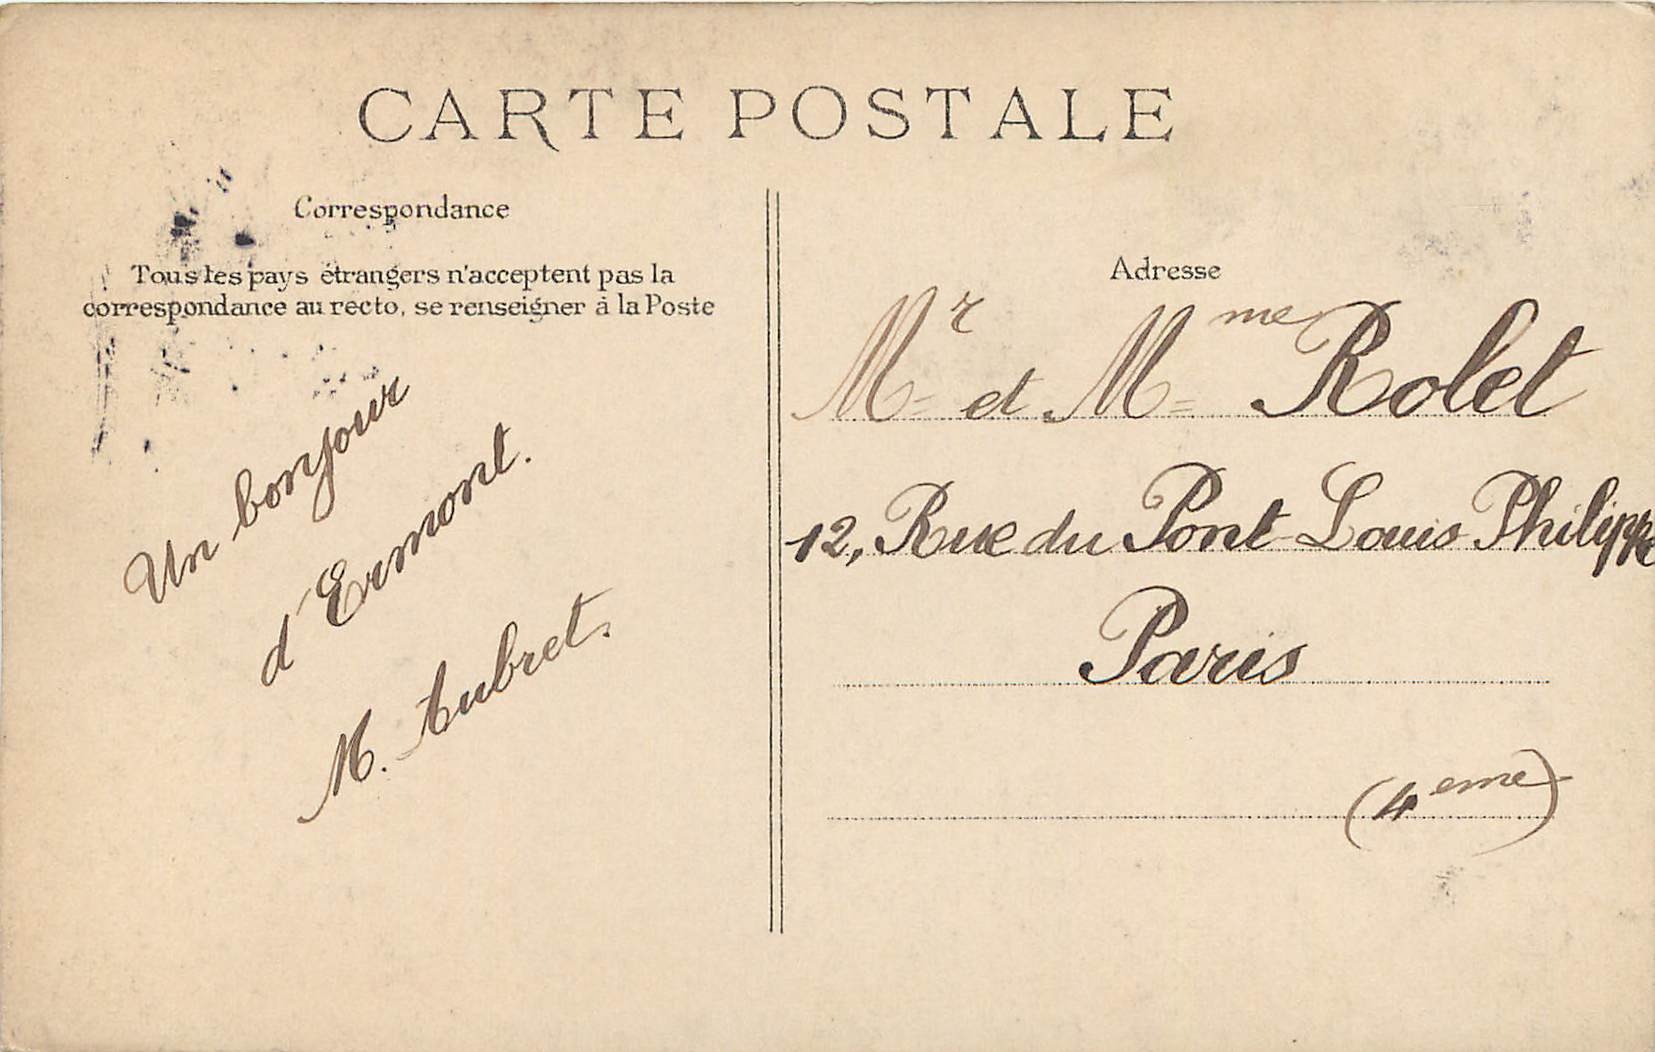 CARTE POSTALE
Correspondance
Tous les pays étrangers n'acceptent pas la
correspondance au recto, se renseigner à la Poste
Un bonjour
d'Ermont.
M. Aubret.
Adresse
Mr et Mme Rolet
12, Rue du Pont Louis Philippe
Paris
(4eme)